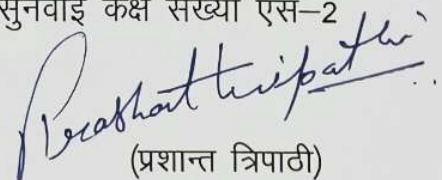 सुनवाई कक्ष संख्या एस–2
Prashant Tripathi
(प्रशान्त त्रिपाठी)